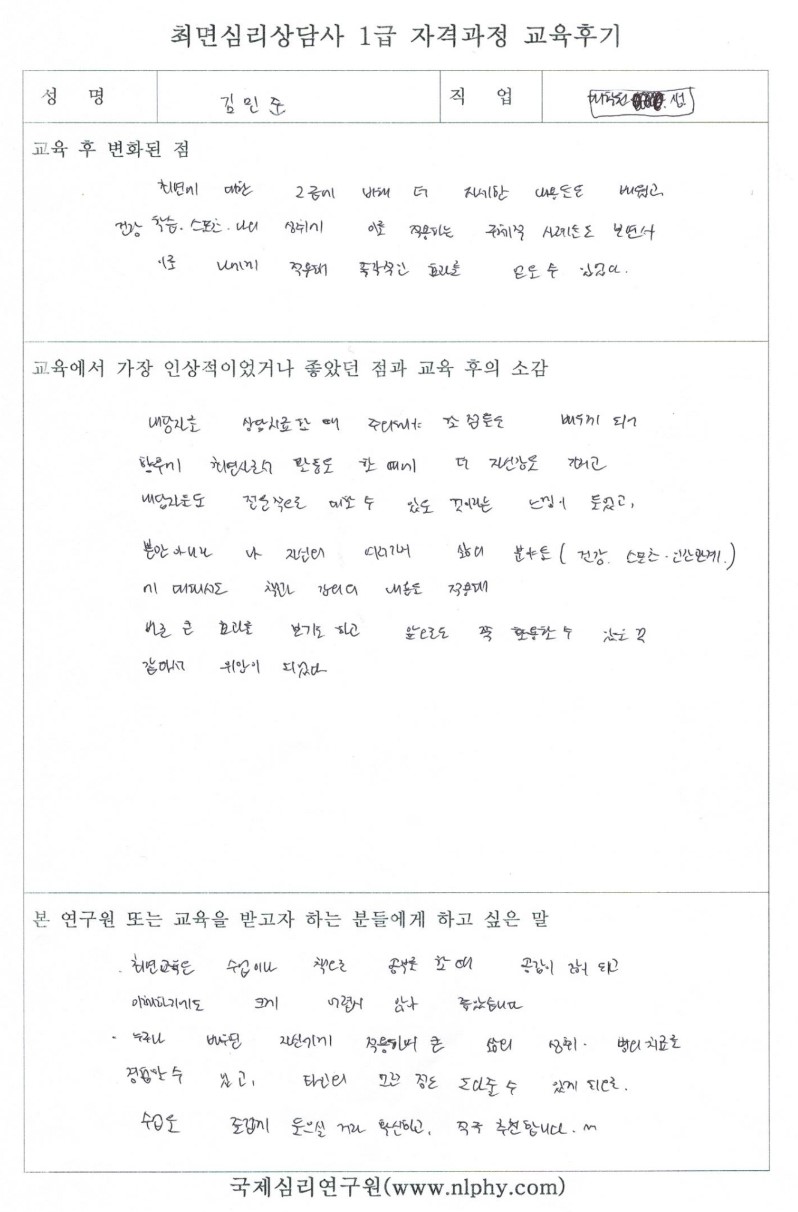 최면심리상담사 1급 자격과정 교육후기
성 명
김민준
직 업
대학원 생
교육 후 변화된 점
최면에 대한 2급에 비해 더 자세한 내용들을 배웠고,
건강 학습. 스포츠. 나의 성취에 이를 적용하는 구체적 사례들을 보면서
이를 나에게 적용해 즉각적인 효과를 얻을 수 있었다.
교육에서 가장 인상적이었거나 좋았던 점과 교육 후의 소감
내담자를 상담치료 할 때 주의해야 할 점들을 배우게 되어
향후에 최면사로서 활동을 할 때에 더 자신감을 갖고
내담자들을 전문적으로 대할 수 있을 것이라는 느낌이 들었고,
뿐만 아니라 나 자신의 여러가지 삶의 분야들 ( 건강. 스포츠. 인간관계.)
에 대해서도 책과 강의의 내용을 적용해
바로 큰 효과를 보기도 하고 앞으로도 쭉 활용할 수 있을 것
같아서 위안이 되었다
본 연구원 또는 교육을 받고자 하는 분들에게 하고 싶은 말
. 최면교육은 수업이나 책으로 공부를 할 때 공감이 많이 되고
이해하기에도 크게 어렵지 않아 좋았습니다
. 누구나 배우면 자신에게 적용하며 큰 삶의 성취. 병의 치료를
경험할 수 있고, 타인의 모든 것을 도와줄 수 있게 되므로.
수업을 즐겁게 들으실 거라 확신하고, 적극 추천합니다. ^^
국제심리연구원(www.nlphy.com)